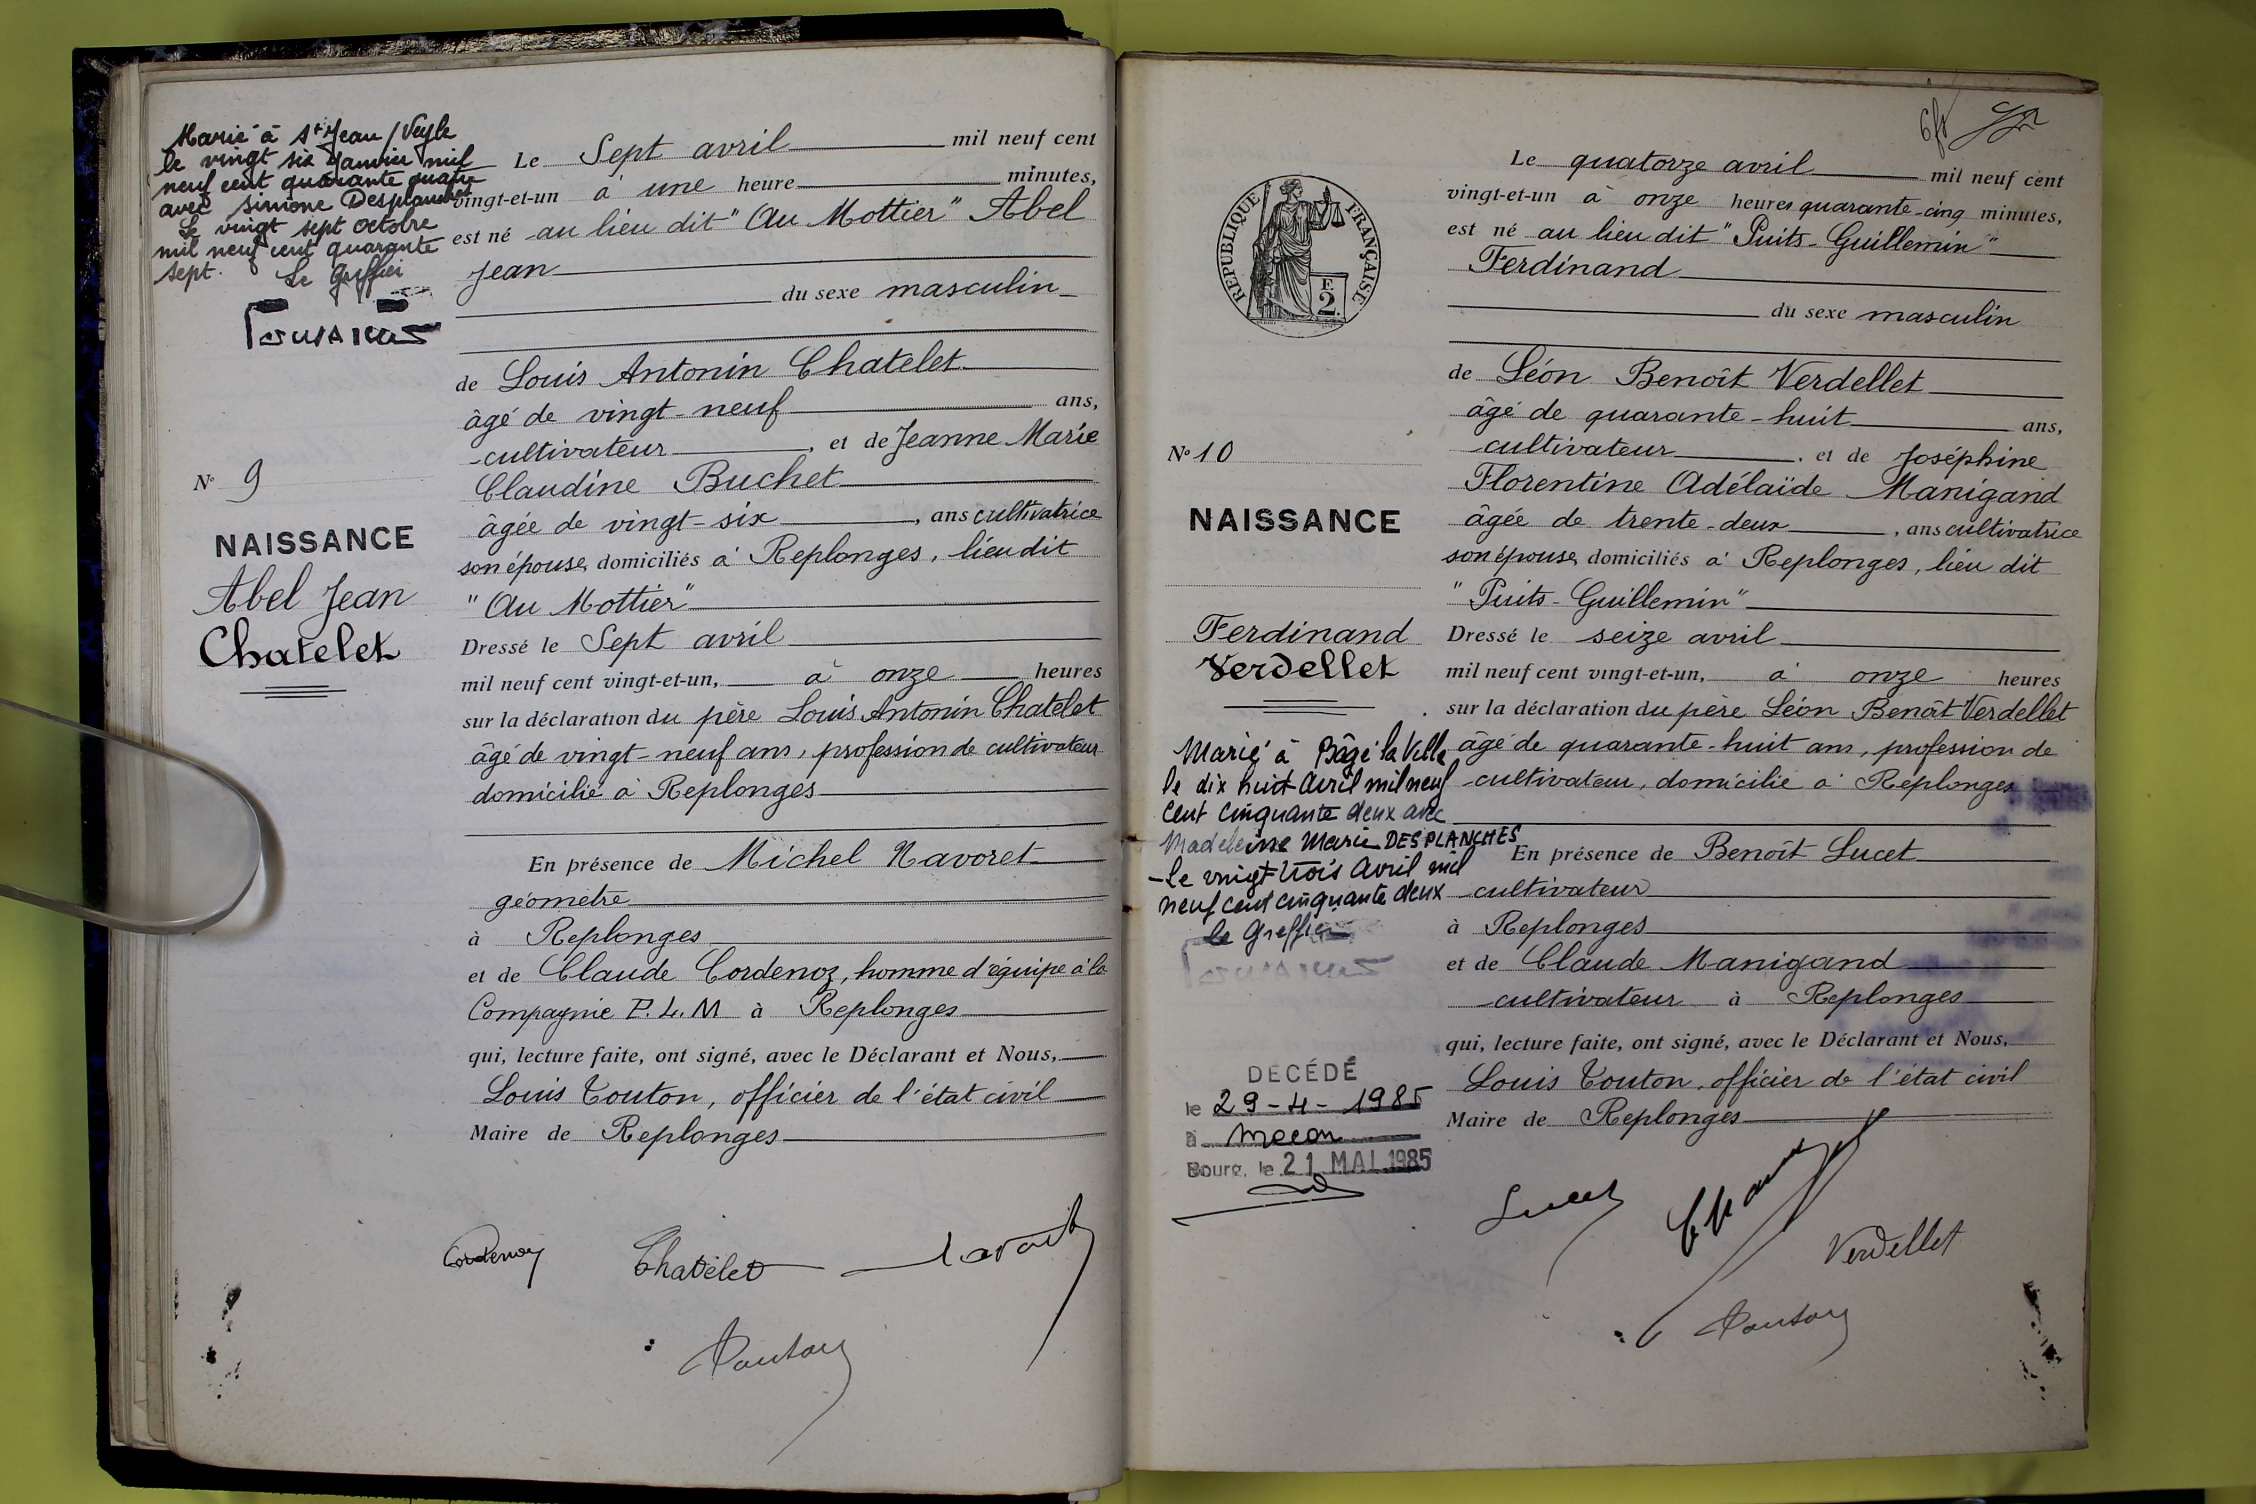 Marié à St Jean / Veyle
le vingt six Janvier mil
neuf cent quarante quatre
avec Simone Desplanches
Le vingt sept octobre
mil neuf cent quarante
sept. Le Greffier
N° 9
NAISSANCE
Abel Jean
Chatelet
Le Sept avril mil neuf cent
vingt-et-un à une heure minutes,
est né au lieu dit "Au Mottier" Abel
Jean
du sexe masculin
de Louis Antonin Chatelet
âgé de vingt-neuf ans,
cultivateur, et de Jeanne Marie
Claudine Buchet
âgée de vingt-six, ans cultivatrice
son épouse, domiciliés à Replonges, lieu dit
"Au Mottier"
Dressé le Sept avril
mil neuf cent vingt-et-un, à onze heures
sur la déclaration du père Louis Antonin Chatelet
âgé de vingt-neuf ans, profession de cultivateur
domicilié à Replonges
En présence de Michel Navoret
géomètre
à Replonges
et de Claude Cordenoz, homme d'équipe à la
Compagnie P.L.M à Replonges
qui, lecture faite, ont signé, avec le Déclarant et Nous,
Louis Touton, officier de l'état civil
Maire de Replonges
Cordenoz Chatelet Navoret
Touton
RÉPUBLIQUE FRANÇAISE
E
2.
N° 10
NAISSANCE
Ferdinand
Verdellet
Marié à Bâgé la Ville
le dix huit Avril mil neuf
cent cinquante deux avec
Madeleine Marie DESPLANCHES
- le vingt trois Avril mil
neuf cent cinquante deux
le Greffier
DÉCÉDÉ
le 29-4-1985
à Macon
Bourg, le 21 MAI 1985
Le quatorze avril mil neuf cent
vingt-et-un à onze heures quarante-cinq minutes,
est né au lieu dit "Puits-Guillemin"
Ferdinand
du sexe masculin
de Léon Benoît Verdellet
âgé de quarante-huit ans,
cultivateur, et de Joséphine
Florentine Adélaïde Manigand
âgée de trente-deux, ans cultivatrice
son épouse, domiciliés à Replonges, lieu dit
"Puits-Guillemin"
Dressé le seize avril
mil neuf cent vingt-et-un, à onze heures
sur la déclaration du père Léon Benoît Verdellet
âgé de quarante-huit ans, profession de
cultivateur, domicilié à Replonges
En présence de Benoît Lucet
cultivateur
à Replonges
et de Claude Manigand
cultivateur à Replonges
qui, lecture faite, ont signé, avec le Déclarant et Nous,
Louis Touton, officier de l'état civil
Maire de Replonges
Lucet
Verdellet
Touton